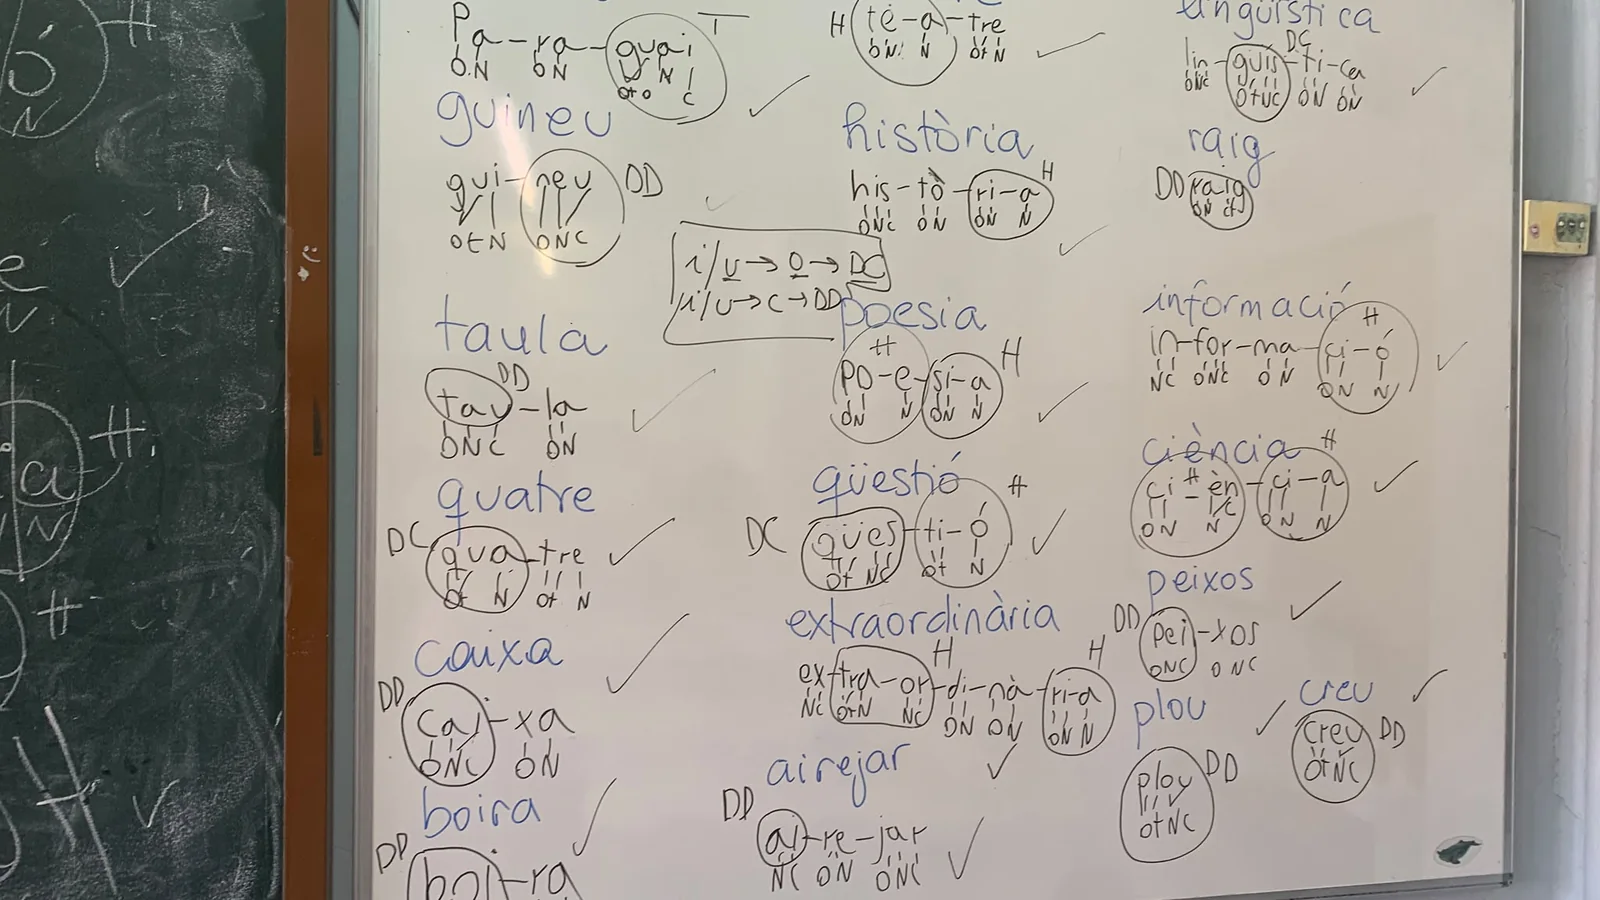 Pa-ra-guai T
ON ON Ot O N C
guineu
gui-neu DD
OtN ONC
i/u→O→DC
i/u→C→DD
taula
DD
tau-la
ONC ON
quatre
DC qua-tre
Ot N Ot N
caixa
DD cai-xa
ONC ON
boira
DD boi-ra
H te-a-tre
ON N Ot N
història
his-tò-ri-a H
ONC ON ON N
poesia
H
po-e-si-a H
ON N ON N
qüestió
DC qües-ti-ó H
Ot NC Ot N
extraordinària
ex-tra-or-di-nà-ri-a H H
NC OtN NC ON ON ON N
airejar
DD ai-re-jar
NC ON ONC
lingüística
DC
lin-güís-ti-ca
ONC OtNC ON ON
raig
DD raig
ON Ct
informació
H
in-for-ma-ci-ó
NC ONC ON ON N
ciència
ci-èn-ci-a H H
ON NC ON N
peixos
DD pei-xos
ONC ONC
plou
plou DD
OtNC
creu
creu DD
OtNC